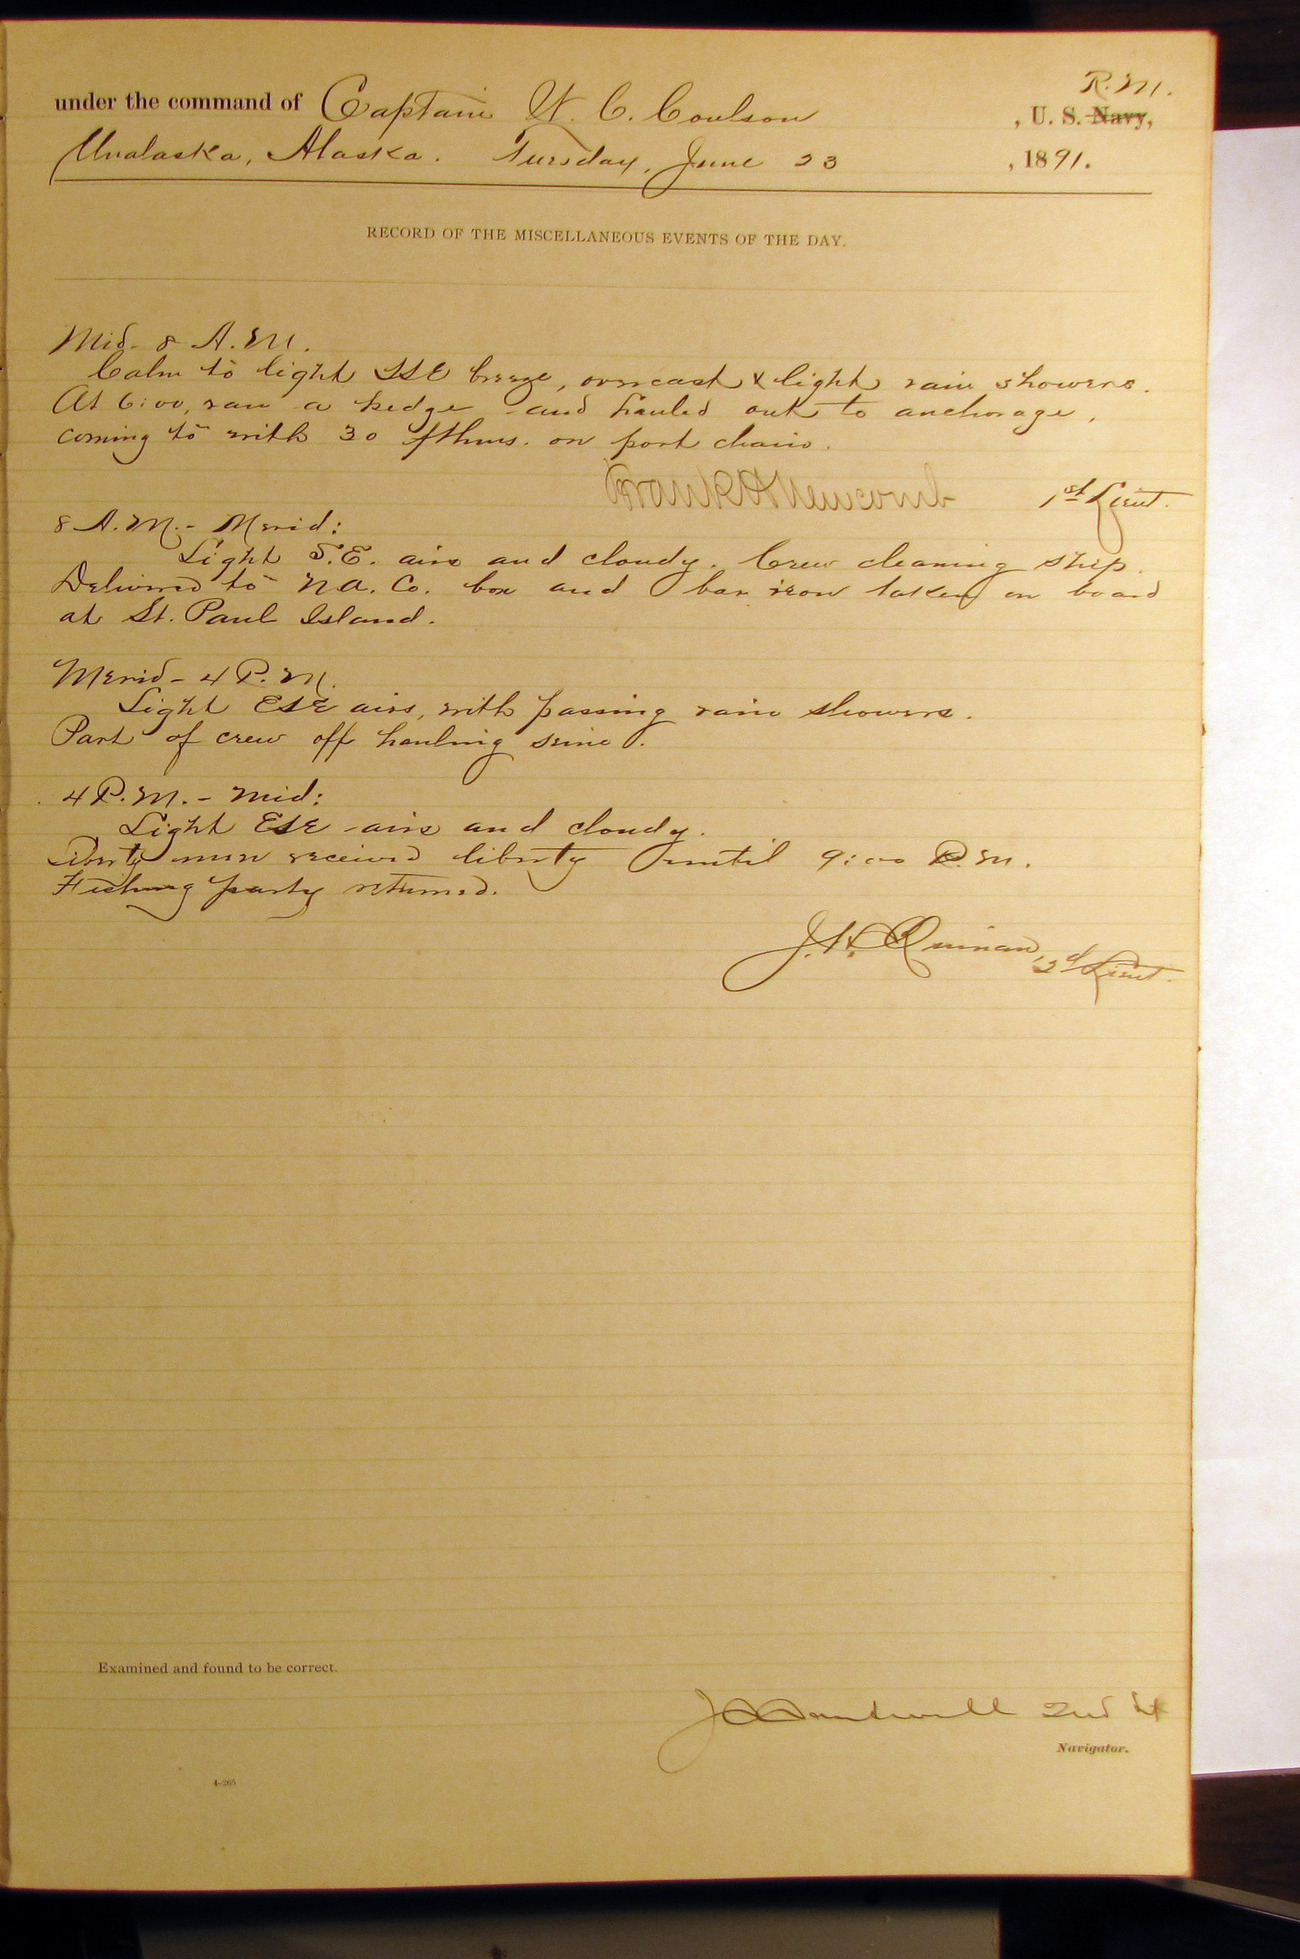 R. M.
under the command of Captain W. C. Coulson , U. S. Navy,
Unalaska, Alaska. Tuesday, June 23 , 1891.
RECORD OF THE MISCELLANEOUS EVENTS OF THE DAY.
Mid - 8 A. M.
Calm to light SSE breeze, overcast & light rain showers.
At 6:00, ran a kedge and hauled out to anchorage,
coming to with 30 fthms. on port chain.
Frank H Newcomb 1st Lieut.
8 A. M. - Merid:
Light S. E. airs and cloudy. Crew cleaning ship.
Delivered to N A. Co. box and bar iron taken on board
at St. Paul Island.
Merid - 4 P. M.
Light ESE airs, with passing rain showers.
Part of crew off hauling seine.
4 P. M. - Mid:
Light ESE airs and cloudy.
Liberty men received liberty until 9:00 P. M.
Fishing party returned.
J. H. Quinan, 2d Lieut.
Examined and found to be correct.
J C Cantwell 2nd Lt
Navigator.
4-265